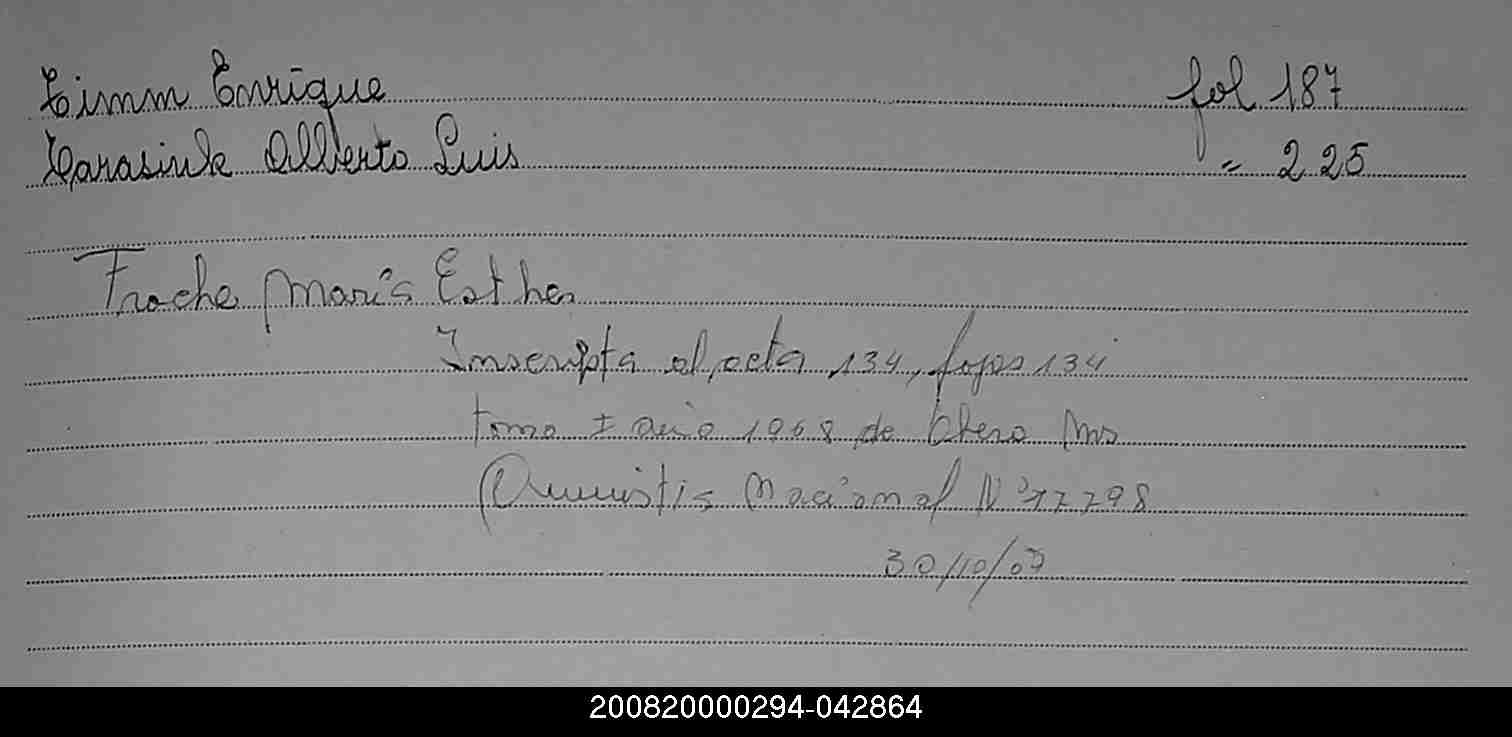 Timm Enrique fol 187
Tarasiuk Alberto Luis = 225
Troche Maria Esther
Inscripta al acta 134, fojas 134
tomo I año 1968 de Obera Mns
(Amnistia Nacional Nº 17798
30/10/07
200820000294-042864